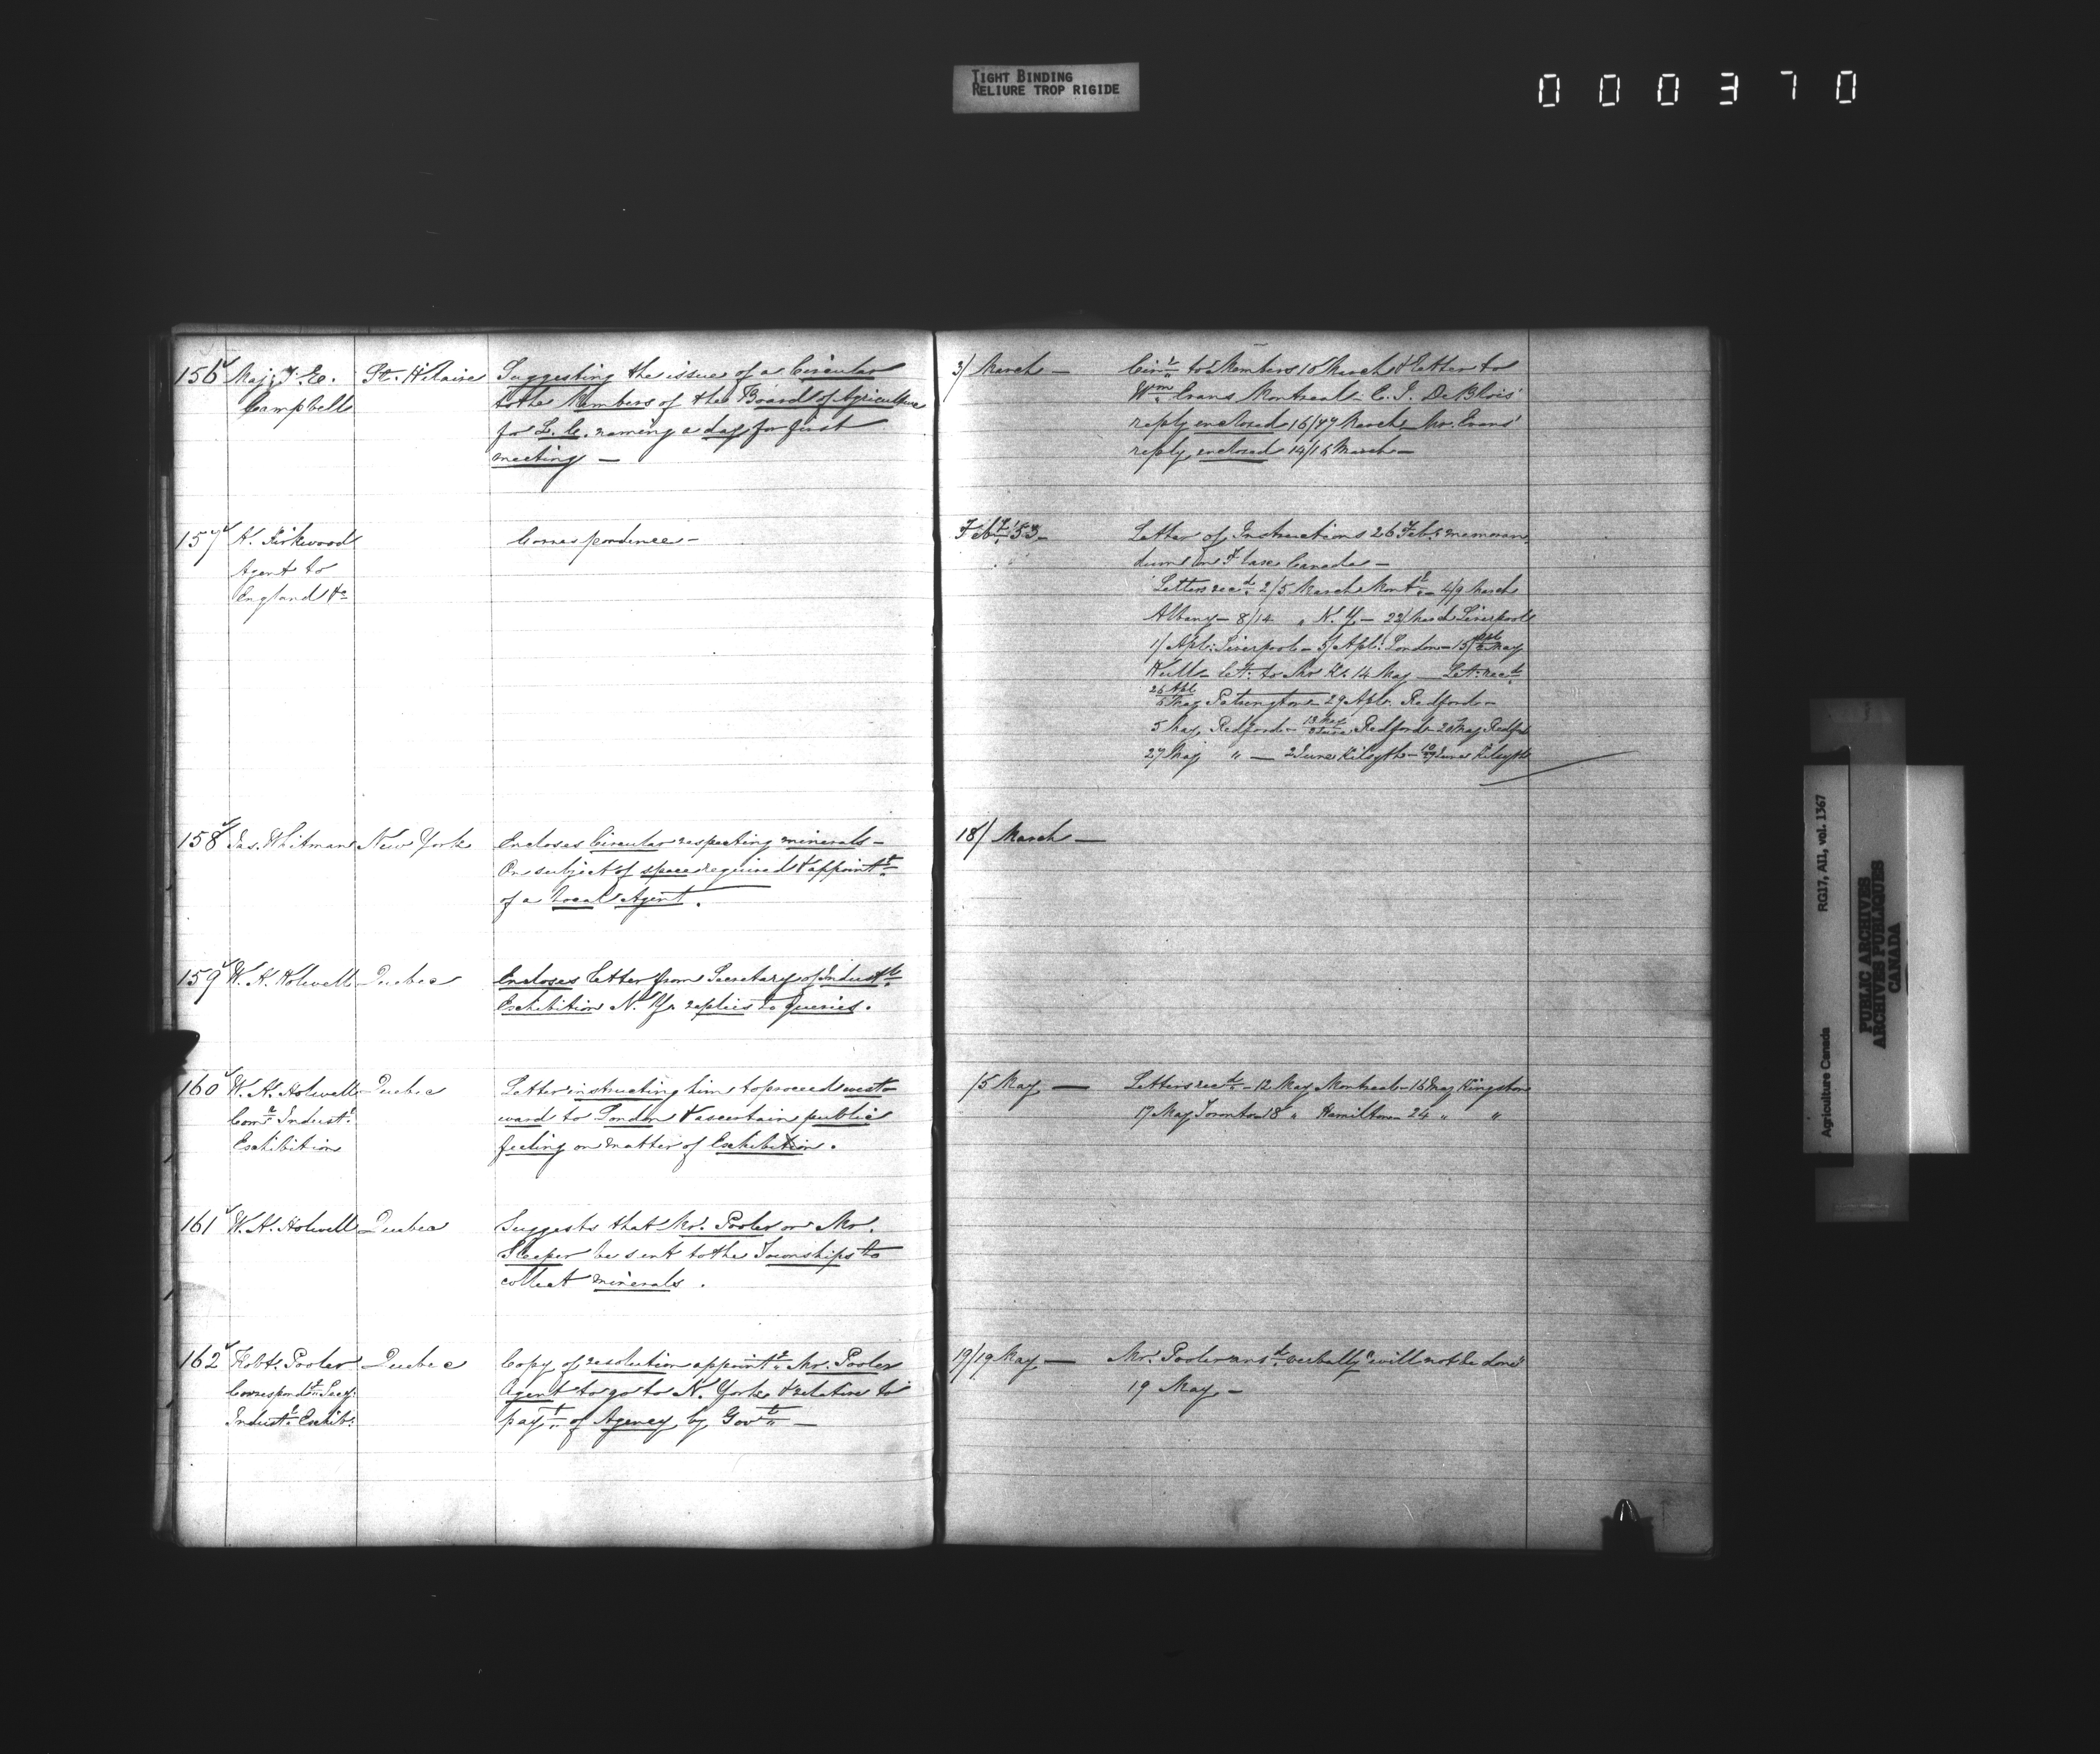 TIGHT BINDING
RELIURE TROP RIGIDE
000370
156 Maj: T. E. St. Hilaire Suggesting the issue of a Circular
Campbell to the Members of the Board of Agriculture
for L. C. naming a day for first
meeting —
3/ March — Cirr to Members 10 March & letter to
Wm Evans Montreal – C. J. De Blois'
reply enclosed 16/17 March Mr. Evans'
reply enclosed 14/15 March —
157 A. Kirkwood Correspondence –
Agent to
England &c
Feby '53 – Letter of Instructions 26 Feby memoran-
dum on Flax Canada –
Letters recd 2/5 March Mont – 4/9 March
Albany – 8/14 " N. Y. – 22/ March Liverpool
1/ Apl: Liverpool – 5/ Apl: London – 15 Apl May
Hull – let: to Mr K. 14 May – Let: recd
26 Apl May Patrington – 29 Apl. Redford –
5 May Redford – 13 May Redford – 20 May Redford
27 May " — 2 June Kilsyth – June Kilsyth
158 Jas. Whitman New York Encloses Circular respecting minerals –
On subject of space required & appointt
of a Local Agent.
18/ March —
159 W. H. Holwell Quebec Encloses letter from Secretary of Industl
Exhibition N. Y. replies to queries.
160 W. A. Holwell Quebec Letter instructing him to proceed west-
Comr Indust: ward to London & ascertain public
Exhibition feeling on matter of Exhibition.
15 May — Letters recd – 12 May Montreal – 16 May Kingston
17 May Toronto – 18 " Hamilton – 24 " "
161 W. A. Holwell Quebec Suggests that Mr. Pooler or Mr.
Sleeper be sent to the Townships to
collect minerals.
162 Robt. Pooler Quebec Copy of resolution appointg Mr. Pooler
Correspondt Secy: Agent to go to N. York & relative to
Indust: Exhib: payt of Agency by Govt —
19/19 May — Mr. Pooler ansd verbally "will not be done"
19 May –
Agriculture Canada RG17, AII, vol. 1367
PUBLIC ARCHIVES
ARCHIVES PUBLIQUES
CANADA